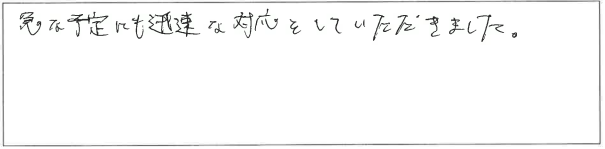 急な予定にも迅速な対応をしていただきました。